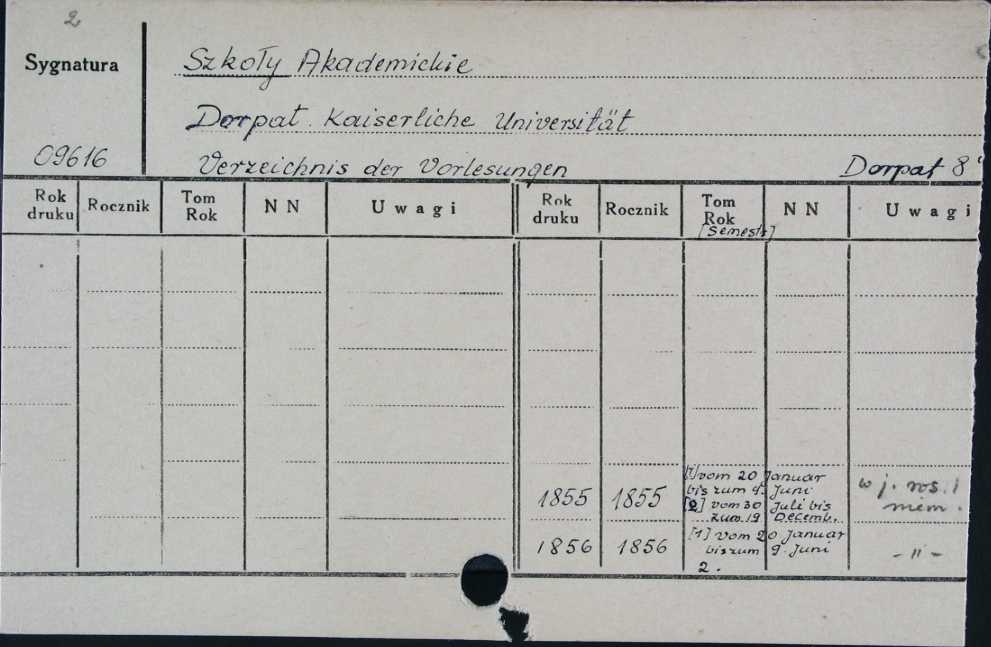 2
Sygnatura
Szkoły Akademickie
Dorpat. Kaiserliche Universität
09616
Verzeichnis der Vorlesungen
Dorpat 8°
Rok druku Rocznik Tom Rok NN Uwagi Rok druku Rocznik Tom Rok [Semestr] NN Uwagi
1855 1855 [1] vom 20 Januar bis zum 9. Juni w j. ros. i niem.
[2] vom 30 Juli bis zum 19 Decemb.
1856 1856 [1] vom 20 Januar bis zum 9. Juni - ıı -
2.